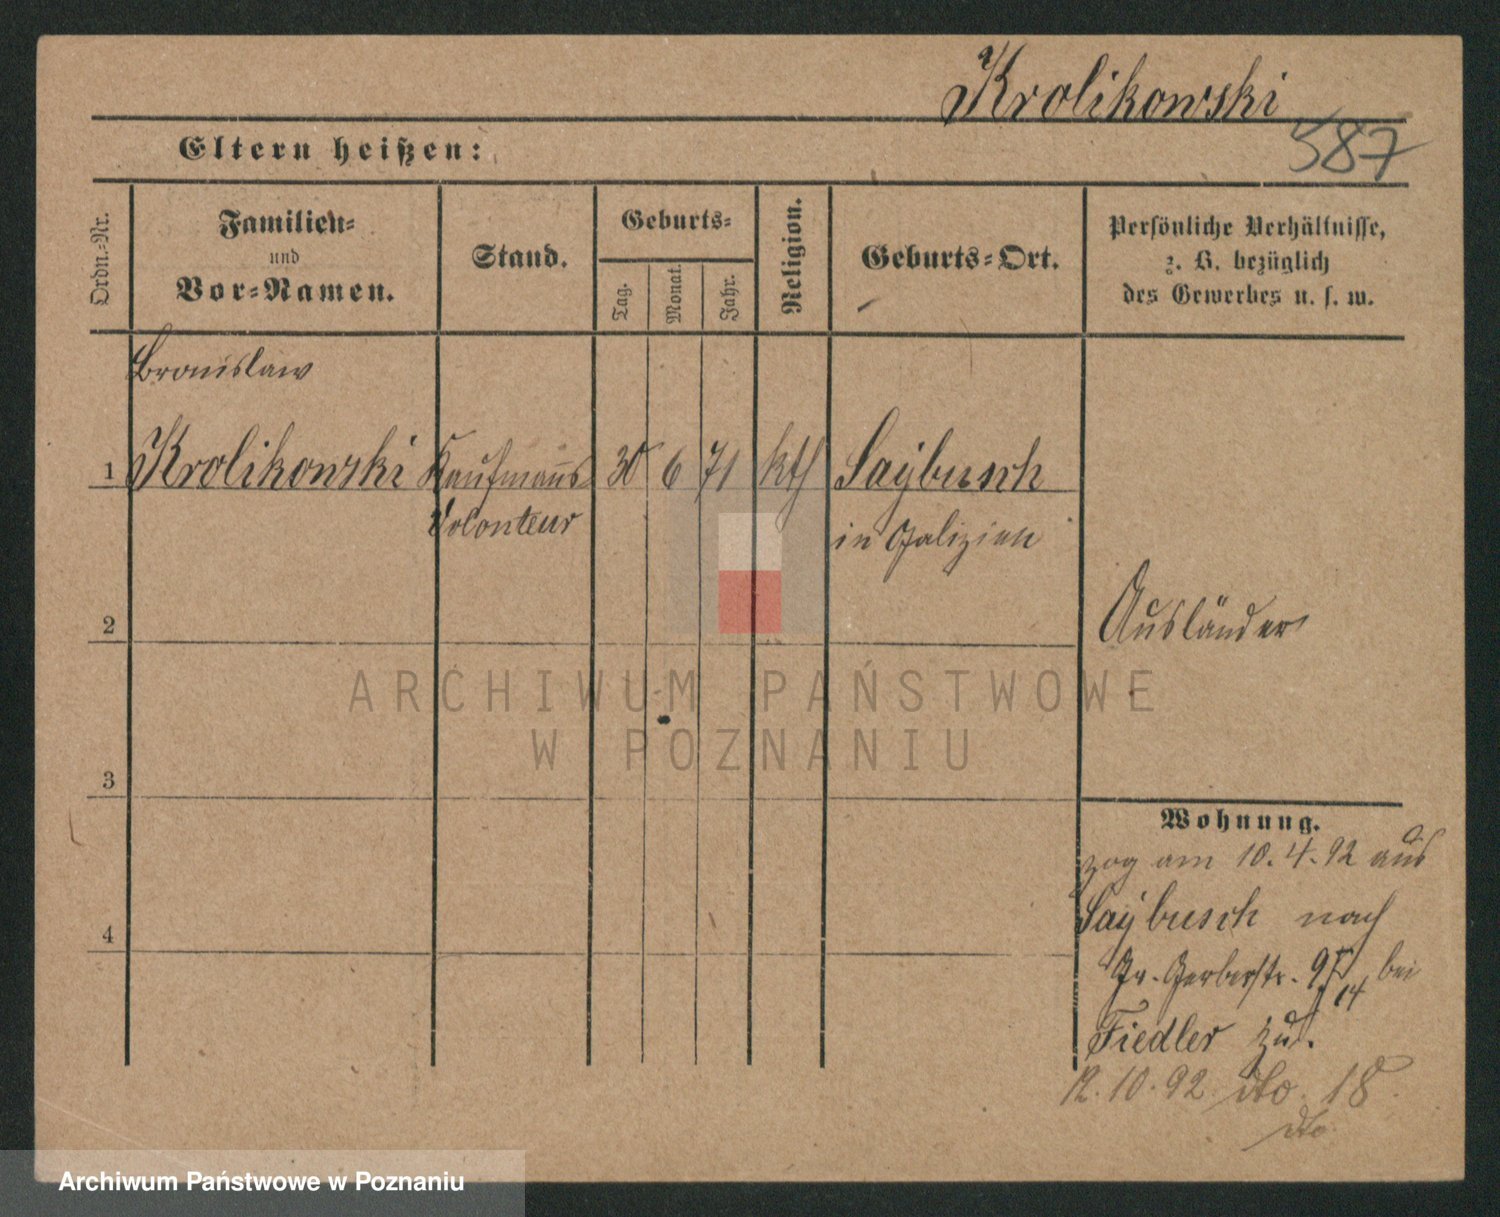 Krolikowski
587
Eltern heißen:
Ordn.-Nr.
Familien-
und
Vor-Namen.
Stand.
Geburts-
Tag.
Monat.
Jahr.
Religion.
Geburts-Ort.
Persönliche Verhältnisse,
z. B. bezüglich
des Gewerbes u. s. w.
Bronislaw
1 Krolikowski Kaufmanns 30 6 71 kth Saybusch
Volonteur in Galizien
2
Ausländer
ARCHIWUM PAŃSTWOWE
W POZNANIU
3
Wohnung.
zog am 10.4.92 aus
Saybusch nach
4
Gr. Gerberstr. bei
14
Fiedler zu.
12.10.92 dto. 18
dto
Archiwum Państwowe w Poznaniu